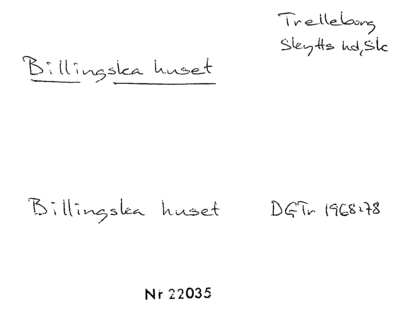 Trelleborg
Skytts hd, Sk
Billingska huset
Billingska huset DGTr 1968:78
Nr 22035